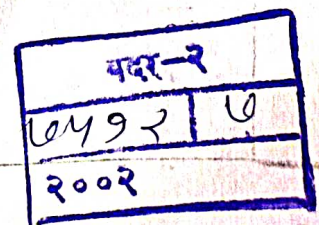 बदर-२
७५१२ ७
२००२